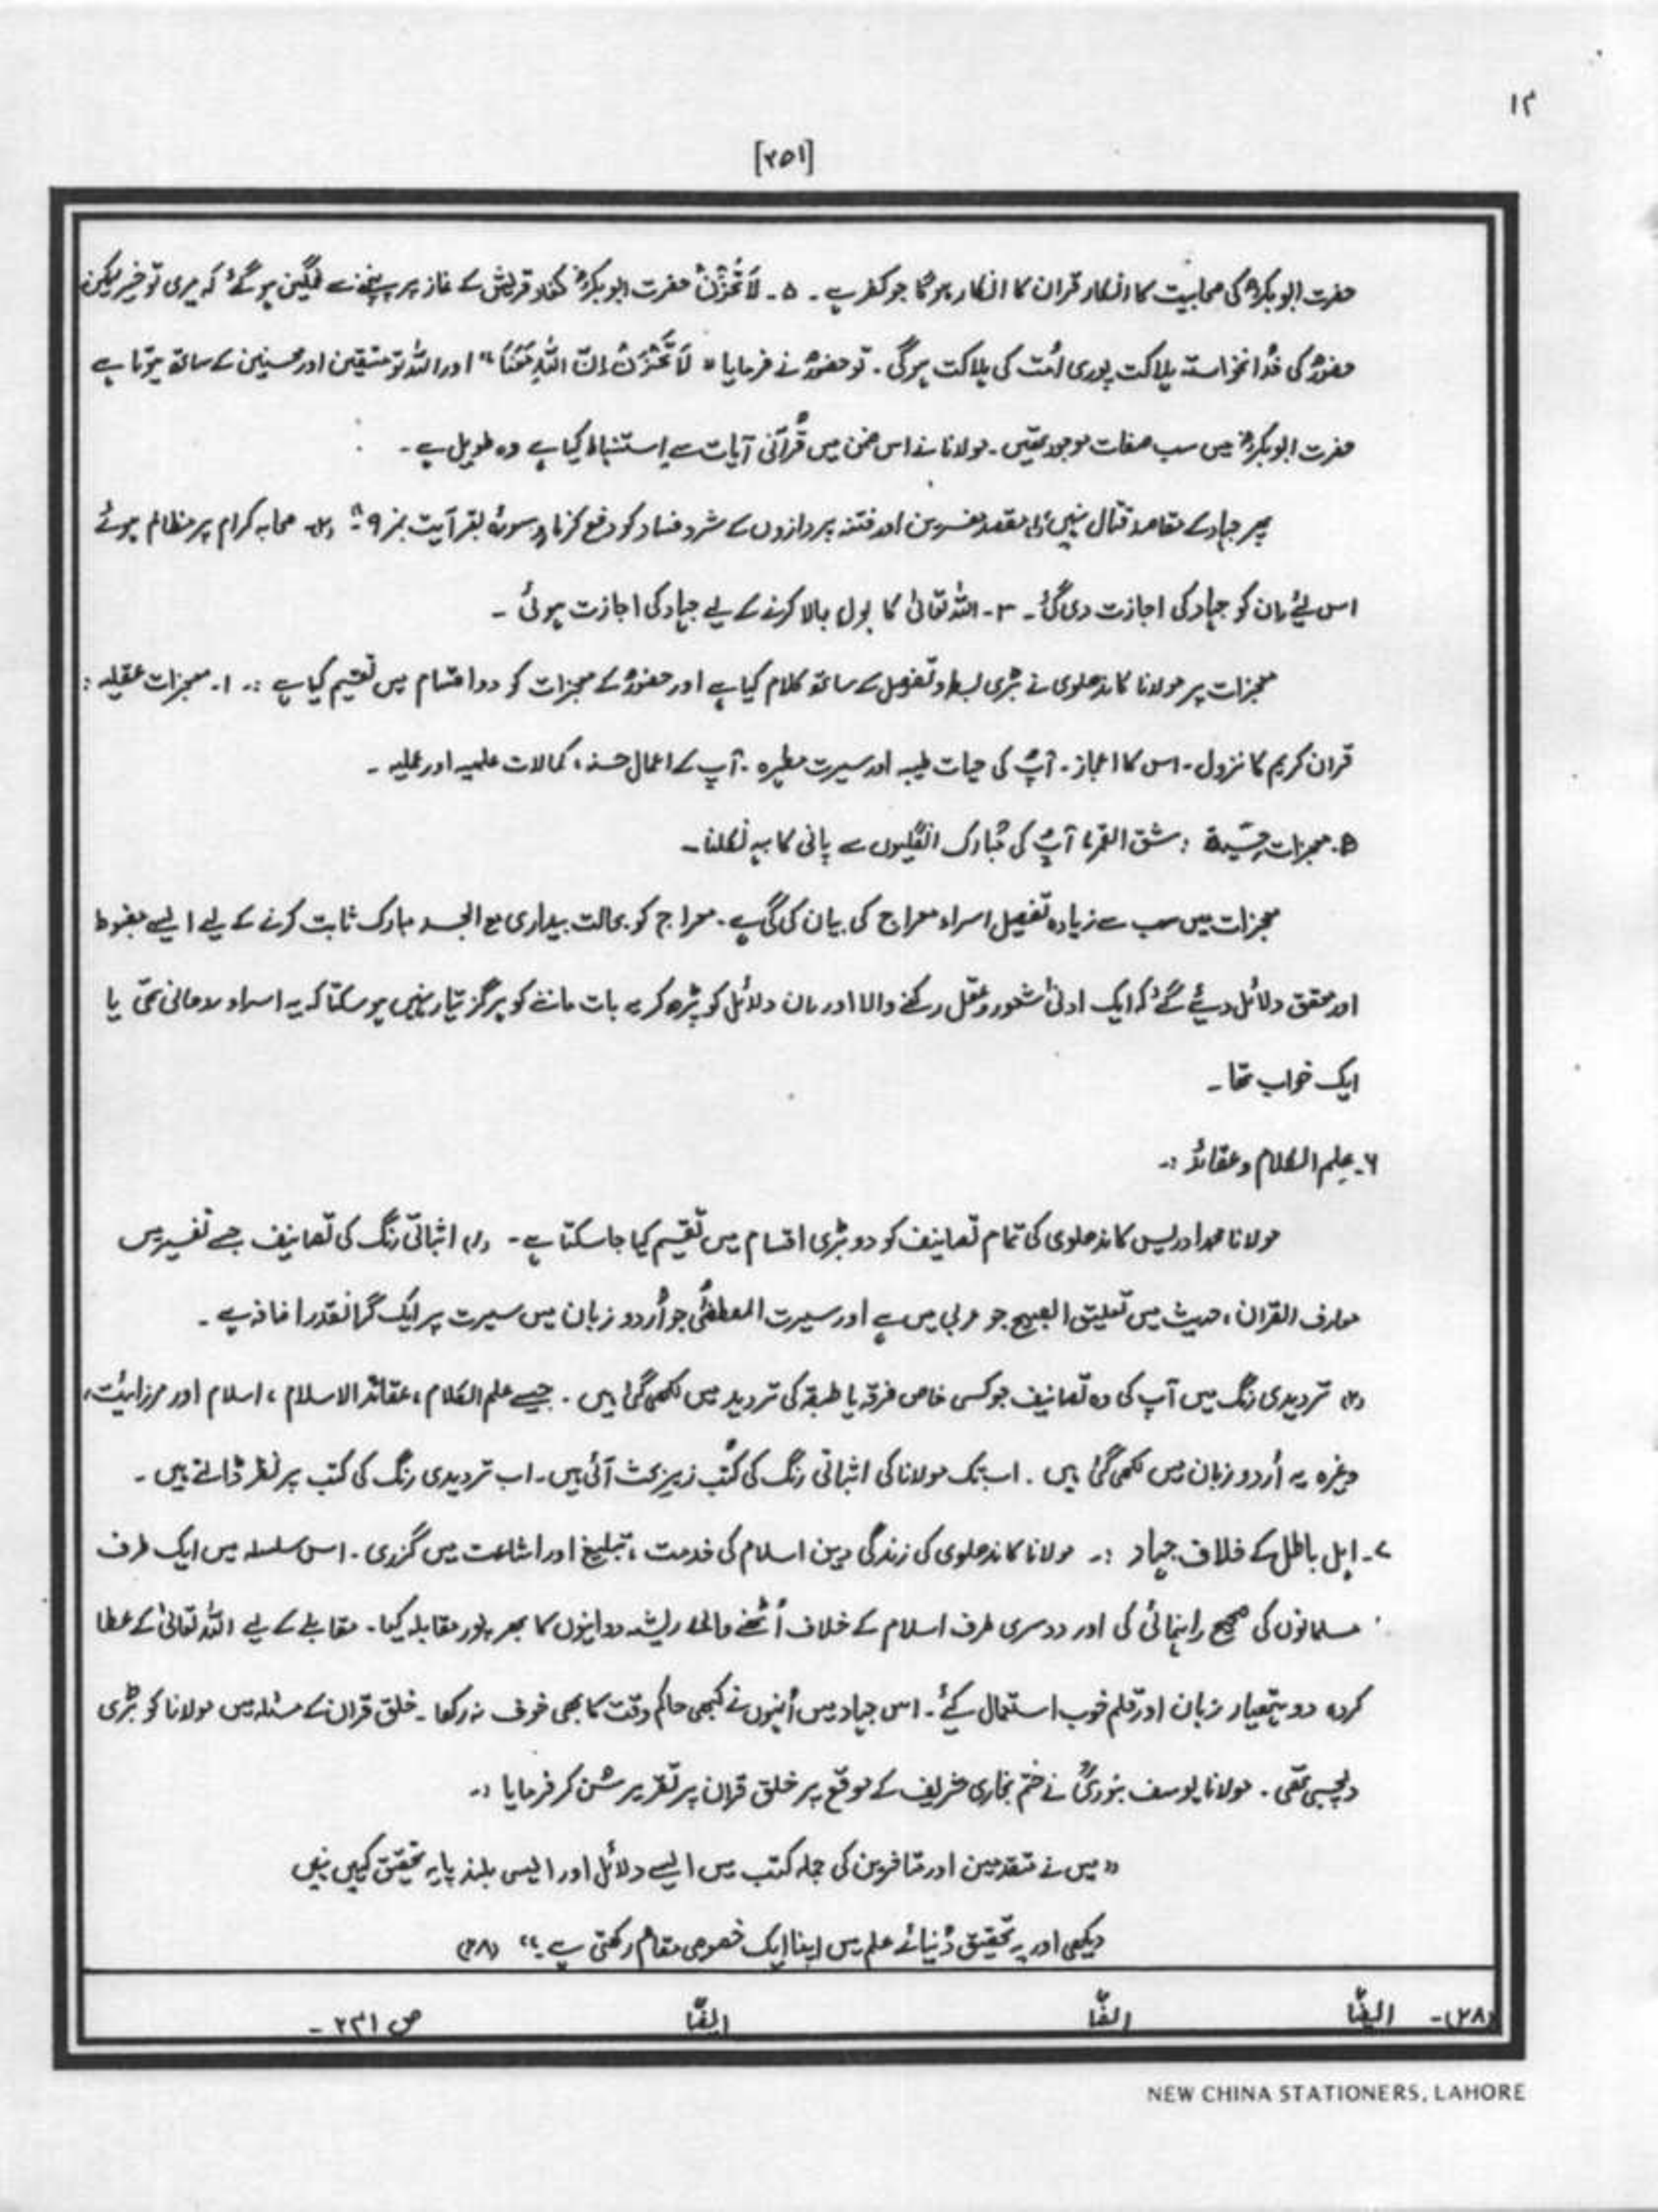 ۱۲
[۲۵۱]
حضرت ابوبکرؓ کی صحابیت کا انکار قران کا انکار ہوگا جو کفر ہے ۔ ۵۔ لَا تَحْزَنْ حضرت ابوبکرؓ کفار قریش کے غار پر پہنچنے سے غمگین ہو گئے کہ میری تو خیر لیکن
حضورؐ کی خدانخواستہ ہلاکت پوری اُمت کی ہلاکت ہوگی ۔ تو حضورؐ نے فرمایا " لَا تَحْزَنْ اِنَّ اللّٰہَ مَعَنَا " اور اللہ تو متقین اور محسنین کے ساتھ ہوتا ہے
حضرت ابوبکرؓ میں سب صفات موجود تھیں ۔ مولانا نے اس ضمن میں قُرآنی آیات سے اِستنباط کیا ہے وہ طویل ہے ۔
پھر جہاد کے مقاصد قتال نہیں (۱) مقصد مفسدین اور فتنہ پردازوں کے شر و فساد کو دفع کرنا سورۃ بقر آیت نمبر (۲) صحابہ کرام پر مظالم ہوئے
اس لئے ان کو جہاد کی اجازت دی گئی ۔ ۳ ۔ اللہ تعالیٰ کا بول بالا کرنے کے لیے جہاد کی اجازت ہوئی ۔
معجزات پر مولانا کاندھلوی نے بڑی بسط و تفصیل کے ساتھ کلام کیا ہے اور حضورؐ کے معجزات کو دو اقسام میں تقسیم کیا ہے :۔ ۱۔ معجزات عقلیہ :
قران کریم کا نزول ۔ اس کا اعجاز ۔ آپؐ کی حیات طیبہ اور سیرت مطہرہ ۔ آپ کے اعمال حسنہ ، کمالات علمیہ اور عملیہ ۔
معجزات حِسّیۃ : شق القمر ، آپؐ کی مُبارک انگلیوں سے پانی کا بہہ نکلنا ۔
معجزات میں سب سے زیادہ تفصیل اسراء معراج کی بیان کی گئی ہے ۔ معراج کو بحالت بیداری مع الجسد مبارک ثابت کرنے کے لیے ایسے مضبوط
اور محقق دلائل دیئے گئے کہ ایک ادنیٰ شعور و عقل رکھنے والا اور ان دلائل کو پڑھ کر یہ بات ماننے کو ہرگز تیار نہیں ہو سکتا کہ یہ اسراء روحانی تھی یا
ایک خواب تھا ۔
۶۔ علم الکلام و عقائد :۔
مولانا محمد ادریس کاندھلوی کی تمام تصانیف کو دو بڑی اقسام میں تقسیم کیا جا سکتا ہے ۔ (۱) اثباتی رنگ کی تصانیف جیسے تفسیر میں
معارف القران ، حدیث میں تعلیق الصبیح جو عربی میں ہے اور سیرت المصطفیٰ جو اُردو زبان میں سیرت پر ایک گرانقدر اضافہ ہے ۔
(۲) تردیدی رنگ میں آپ کی وہ تصانیف جو کسی خاص فرقہ یا طبقہ کی تردید میں لکھی گئی ہیں ۔ جیسے علم الکلام ، عقائد الاسلام ، اسلام اور مرزائیت ،
وغیرہ یہ اُردو زبان میں لکھی گئی ہیں ۔ اب تک مولانا کی اثباتی رنگ کی کُتب زیر بحث آئی ہیں ۔ اب تردیدی رنگ کی کتب پر نظر ڈالتے ہیں ۔
۷۔ اہل باطل کے خلاف جہاد :۔ مولانا کاندھلوی کی زندگی دین اسلام کی خدمت ، تبلیغ اور اشاعت میں گزری ۔ اس سلسلہ میں ایک طرف
مسلمانوں کی صحیح راہنمائی کی اور دوسری طرف اسلام کے خلاف اُٹھنے والی ریشہ دوانیوں کا بھرپور مقابلہ کیا ۔ مقابلے کے لیے اللہ تعالیٰ کے عطا
کردہ دو ہتھیار زبان اور قلم خوب استعمال کیئے ۔ اس جہاد میں اُنہوں نے کبھی حاکم وقت کا بھی خوف نہ رکھا ۔ خلق قران کے مسئلہ میں مولانا کو بڑی
دلچسپی تھی ۔ مولانا یوسف بنوریؒ نے ختم بخاری شریف کے موقع پر خلق قران پر تقریر سُن کر فرمایا :۔
" میں نے متقدمین اور متاخرین کی جملہ کتب میں ایسے دلائل اور ایسی بلند پایہ تحقیق کہیں نہیں
دیکھی اور یہ تحقیق دُنیائے علم میں اپنا ایک خصوصی مقام رکھتی ہے ۔" (۲۸)
(۲۸)۔ ایضًا ایضًا ایضًا ص ۲۳۱ ۔
NEW CHINA STATIONERS, LAHORE